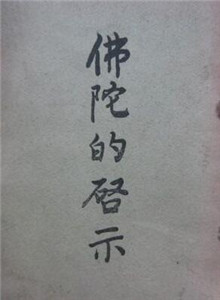 佛陀的启示